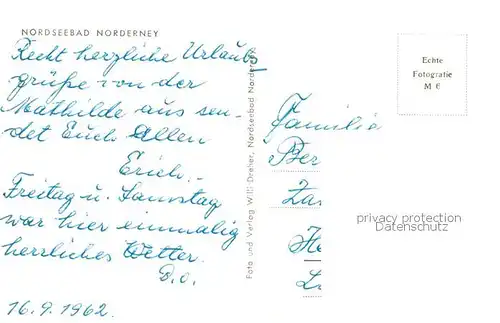 NORDSEEBAD NORDERNEY
Recht herzliche Urlaubs
grüße von der
Mathilde aus sen-
det Euch Allen
Erich.-
Freitag u. Samstag
war hier einmalig
herrliches Wetter.
D.o.
16.9.1962.
Foto und Verlag Willi Dreher, Nordseebad Norderney
Echte
Fotografie
M 6
Familie
Ber
privacy protection
Datenschutz